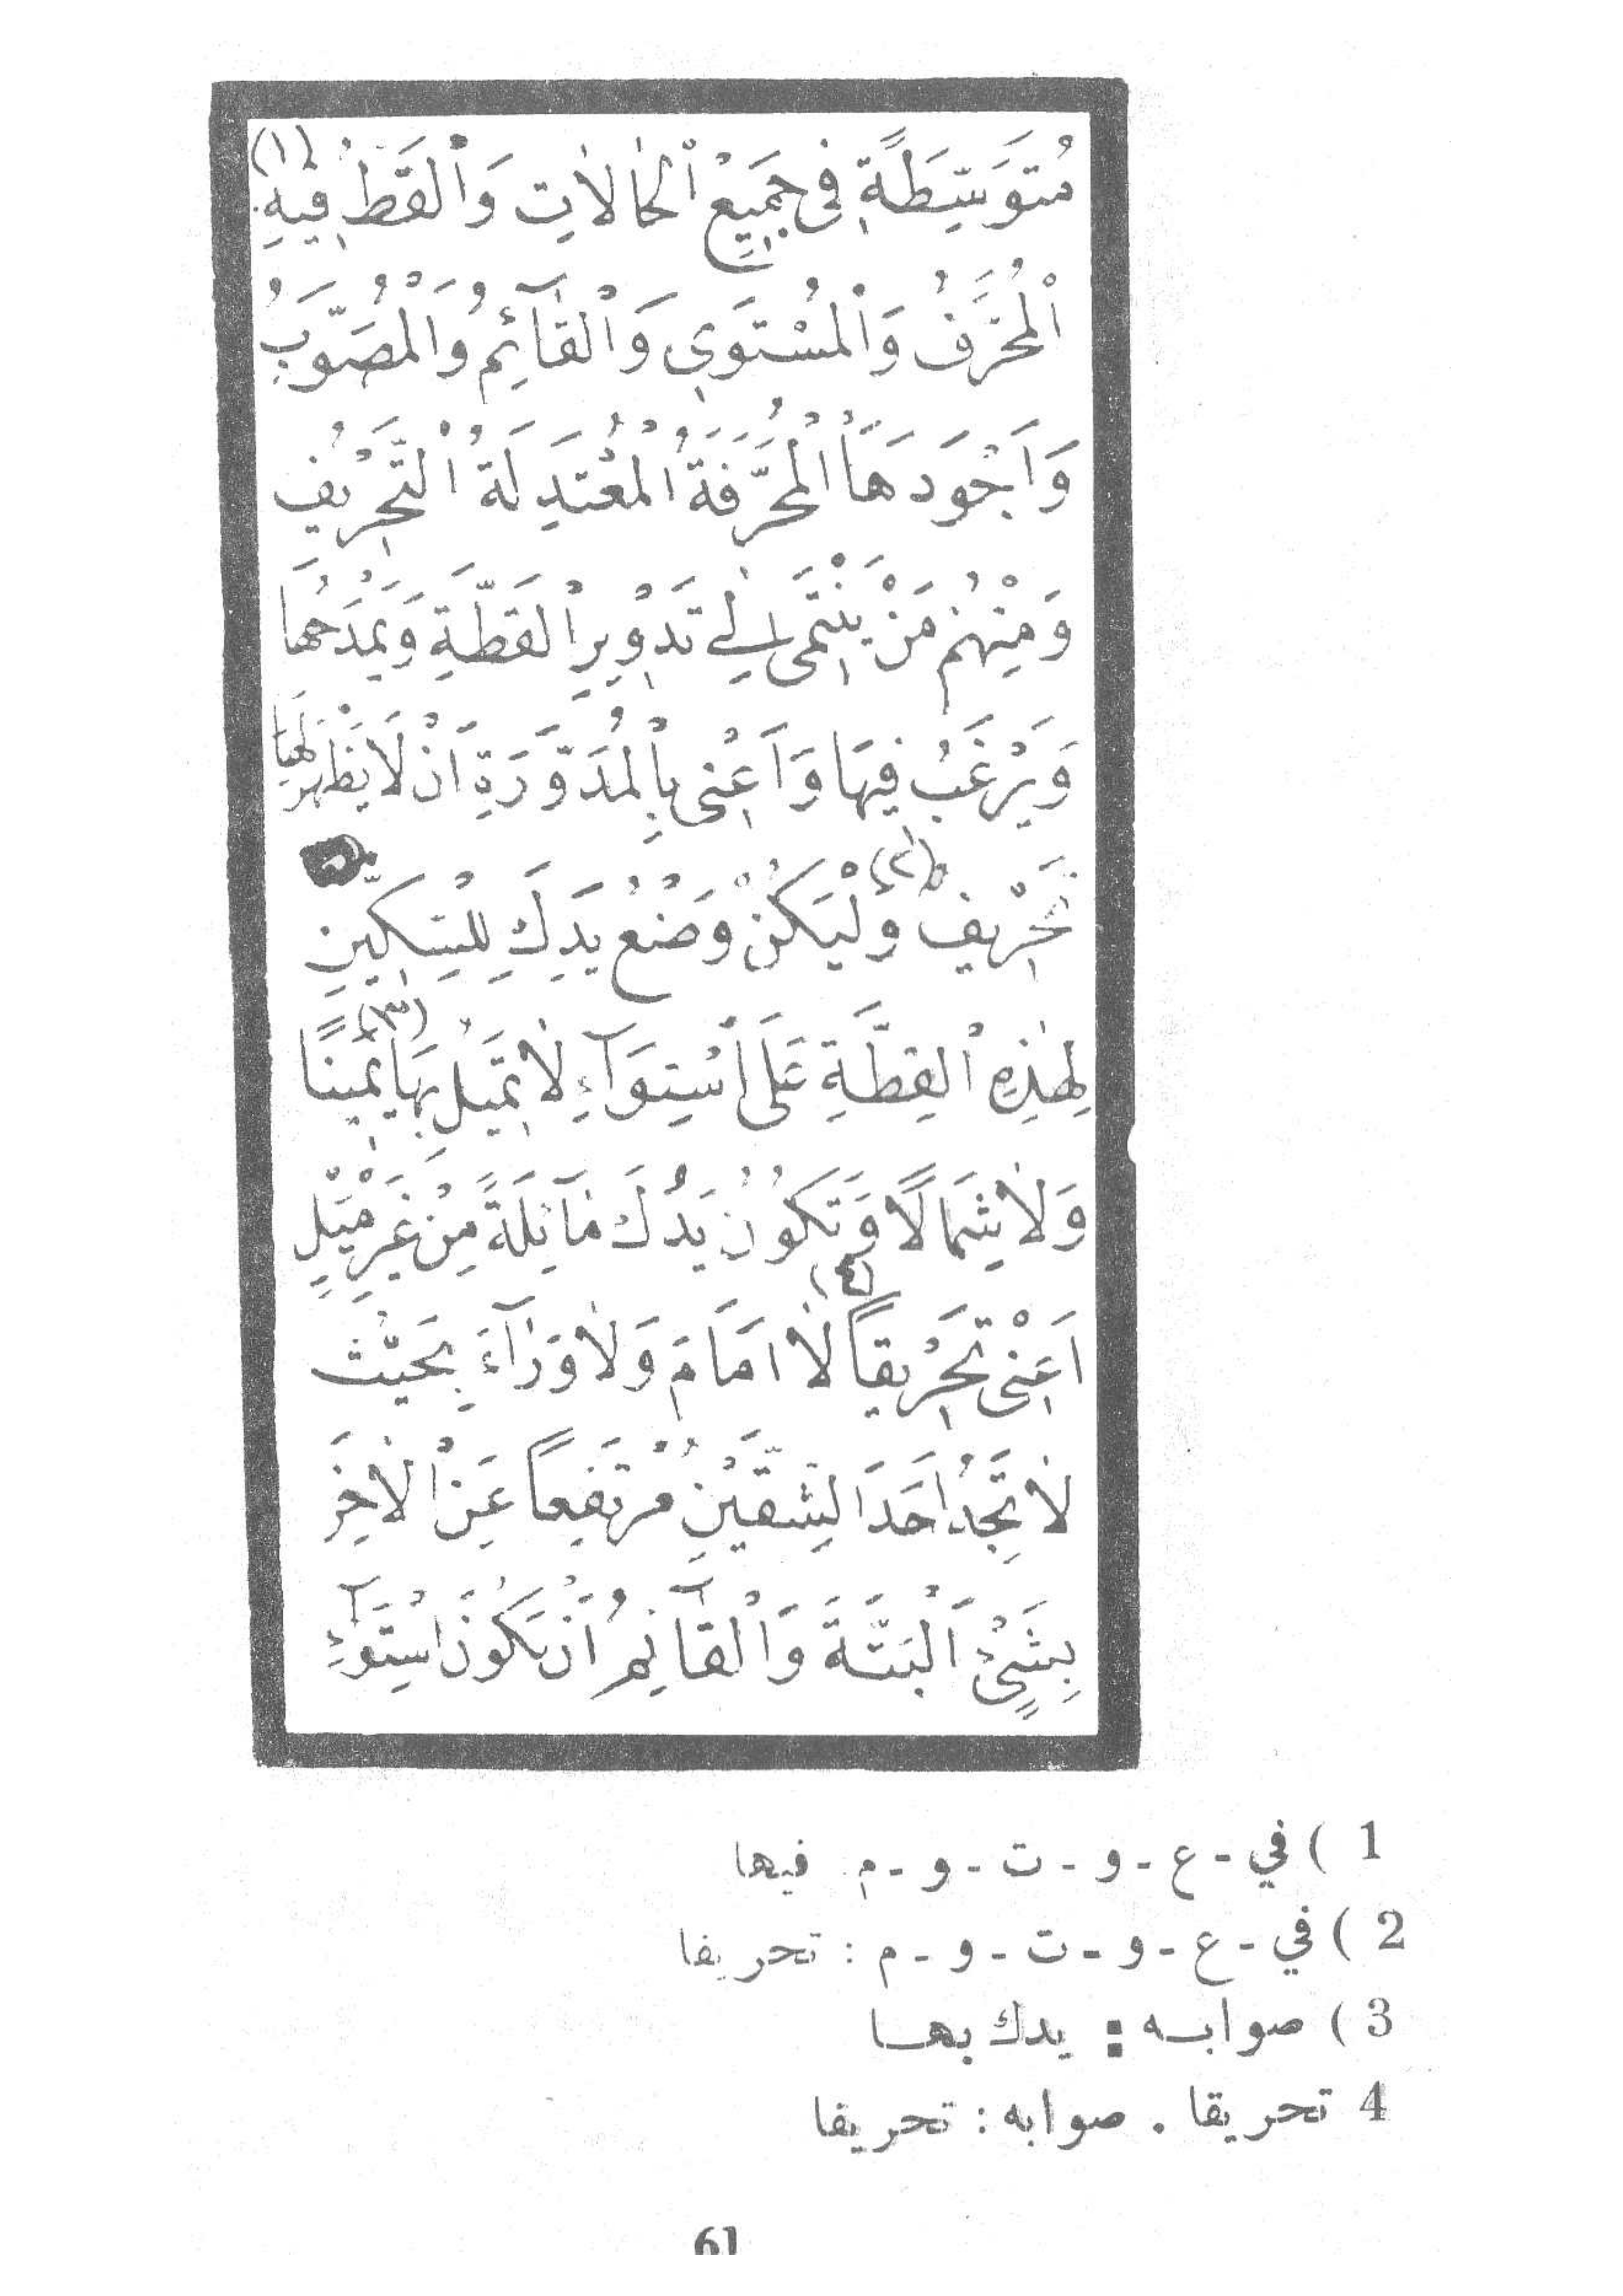 مُتَوَسِّطَةً فِي جَمِيعِ ٱلْحٰالٰاتِ وَٱلْقَطُّ فِيهِ (١)
ٱلْمُحَرَّفُ وَٱلْمُسْتَوِي وَٱلْقَآئِمُ وَٱلْمُصَوَّبُ
وَاَجْوَدَهَا ٱلْمُحَرَّفَةُ ٱلْمُعْتَدِلَةُ ٱلتَّحْرِيفِ
وَمِنْهُمْ مَنْ يَنْتَمِى اِلٰي تَدْوِيرِ ٱلْقَطَّةِ وَيَمْدَحُهَا
وَيَرْغَبُ فِيهَا وَاَعْنِى بِٱلْمُدَوَّرَةِ اَنْ لَا يَظْهَرَ لَهَا
تَحْرِيف (٢) وَلْيَكُنْ وَضْعُ يَدِكَ لِلسِّكِّينِ
لِهٰذِهِ ٱلْقِطَّةِ عَلَى ٱسْتِوَآءِ لٰا تَمِيلُ بِهَا (٣) يَمِينًا
وَلٰا شِمَالًا وَتَكُونُ يَدُكَ مَآئِلَةً مِنْ غَيْرِ مَيْلٍ
اَعْنِى تَحْرِيقاً (٤) لٰا اَمَامَ وَلٰا وَرَآءَ بِحَيْثُ
لٰا تَجِدُ اَحَدَ الشِّقَّيْنِ مُرْتَفِعاً عَنِ ٱلْاٰخَرِ
بِشَيْءٍ اَلْبَتَّةَ وَٱلْقَآئِمُ اَنْ يَكُونَ اسْتِوَآءِ
1 ) في - ع - و - ت - و - م . فيها
2 ) في - ع - و - ت - و - م : تحريفا
3 ) صوابه : يدك بها
4 تحريقا . صوابه : تحريفا
61